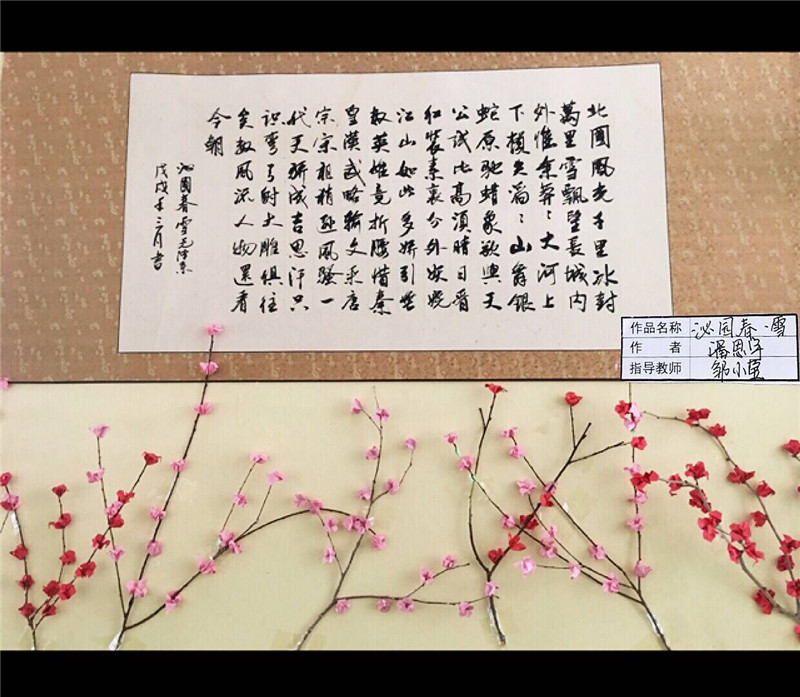 北國風光千里冰封
萬里雪飄望長城内
外惟余莽〻大河上
下頓失滔〻山舞銀
蛇原馳蜡象欲與天
公試比高須晴日看
紅裝素裹分外妖嬈
江山如此多娇引無
数英雄竟折腰惜秦
皇漢武略输文采唐
宗宋祖稍逊風骚一
代天骄成吉思汗只
识弯弓射大雕俱往
矣数風流人物還看
今朝
沁園春雪毛泽东
戊戌年三月書
作品名称 沁园春·雪
作 者 潘思宇
指导教师 邹小